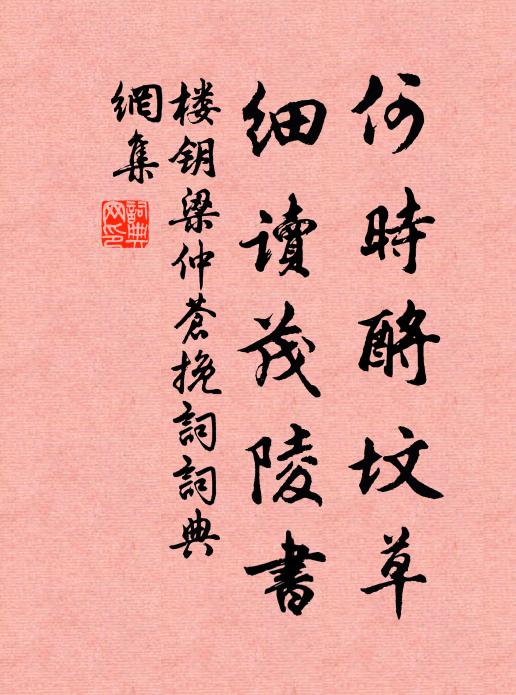 何時酹坟草
細讀茂陵書
楼钥梁仲蒼挽詞詞典
網集
詞典
网印